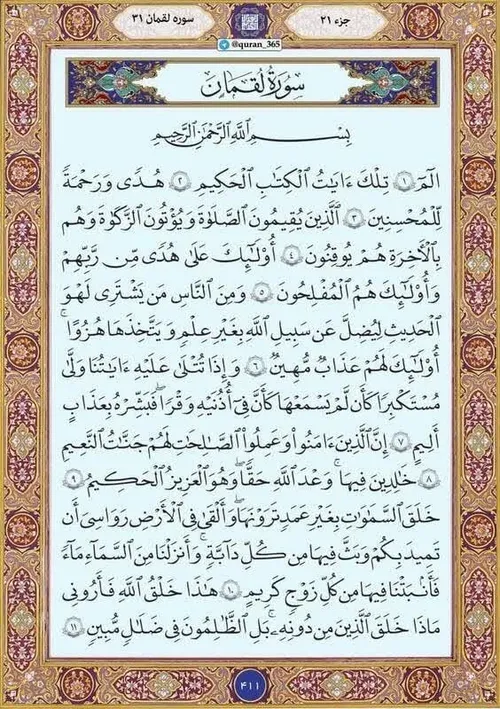 جزء ۲۱
سوره لقمان ۳۱
@quran_365
سُورَةُ لُقۡمَانَ
بِسۡمِ ٱللَّهِ ٱلرَّحۡمَٰنِ ٱلرَّحِيمِ
الٓمٓ ۝١ تِلۡكَ ءَايَٰتُ ٱلۡكِتَٰبِ ٱلۡحَكِيمِ ۝٢ هُدٗى وَرَحۡمَةٗ
لِّلۡمُحۡسِنِينَ ۝٣ ٱلَّذِينَ يُقِيمُونَ ٱلصَّلَوٰةَ وَيُؤۡتُونَ ٱلزَّكَوٰةَ وَهُم
بِٱلۡأٓخِرَةِ هُمۡ يُوقِنُونَ ۝٤ أُوْلَٰٓئِكَ عَلَىٰ هُدٗى مِّن رَّبِّهِمۡ
وَأُوْلَٰٓئِكَ هُمُ ٱلۡمُفۡلِحُونَ ۝٥ وَمِنَ ٱلنَّاسِ مَن يَشۡتَرِي لَهۡوَ
ٱلۡحَدِيثِ لِيُضِلَّ عَن سَبِيلِ ٱللَّهِ بِغَيۡرِ عِلۡمٖ وَيَتَّخِذَهَا هُزُوًاۚ
أُوْلَٰٓئِكَ لَهُمۡ عَذَابٞ مُّهِينٞ ۝٦ وَإِذَا تُتۡلَىٰ عَلَيۡهِ ءَايَٰتُنَا وَلَّىٰ
مُسۡتَكۡبِرٗا كَأَن لَّمۡ يَسۡمَعۡهَا كَأَنَّ فِيٓ أُذُنَيۡهِ وَقۡرٗاۖ فَبَشِّرۡهُ بِعَذَابٍ
أَلِيمٍ ۝٧ إِنَّ ٱلَّذِينَ ءَامَنُواْ وَعَمِلُواْ ٱلصَّٰلِحَٰتِ لَهُمۡ جَنَّٰتُ ٱلنَّعِيمِ
۝٨ خَٰلِدِينَ فِيهَاۖ وَعۡدَ ٱللَّهِ حَقّٗاۚ وَهُوَ ٱلۡعَزِيزُ ٱلۡحَكِيمُ ۝٩
خَلَقَ ٱلسَّمَٰوَٰتِ بِغَيۡرِ عَمَدٖ تَرَوۡنَهَاۖ وَأَلۡقَىٰ فِي ٱلۡأَرۡضِ رَوَٰسِيَ أَن
تَمِيدَ بِكُمۡ وَبَثَّ فِيهَا مِن كُلِّ دَآبَّةٖۚ وَأَنزَلۡنَا مِنَ ٱلسَّمَآءِ مَآءٗ
فَأَنۢبَتۡنَا فِيهَا مِن كُلِّ زَوۡجٖ كَرِيمٍ ۝١٠ هَٰذَا خَلۡقُ ٱللَّهِ فَأَرُونِي
مَاذَا خَلَقَ ٱلَّذِينَ مِن دُونِهِۦۚ بَلِ ٱلظَّٰلِمُونَ فِي ضَلَٰلٖ مُّبِينٖ ۝١١
۴۱۱